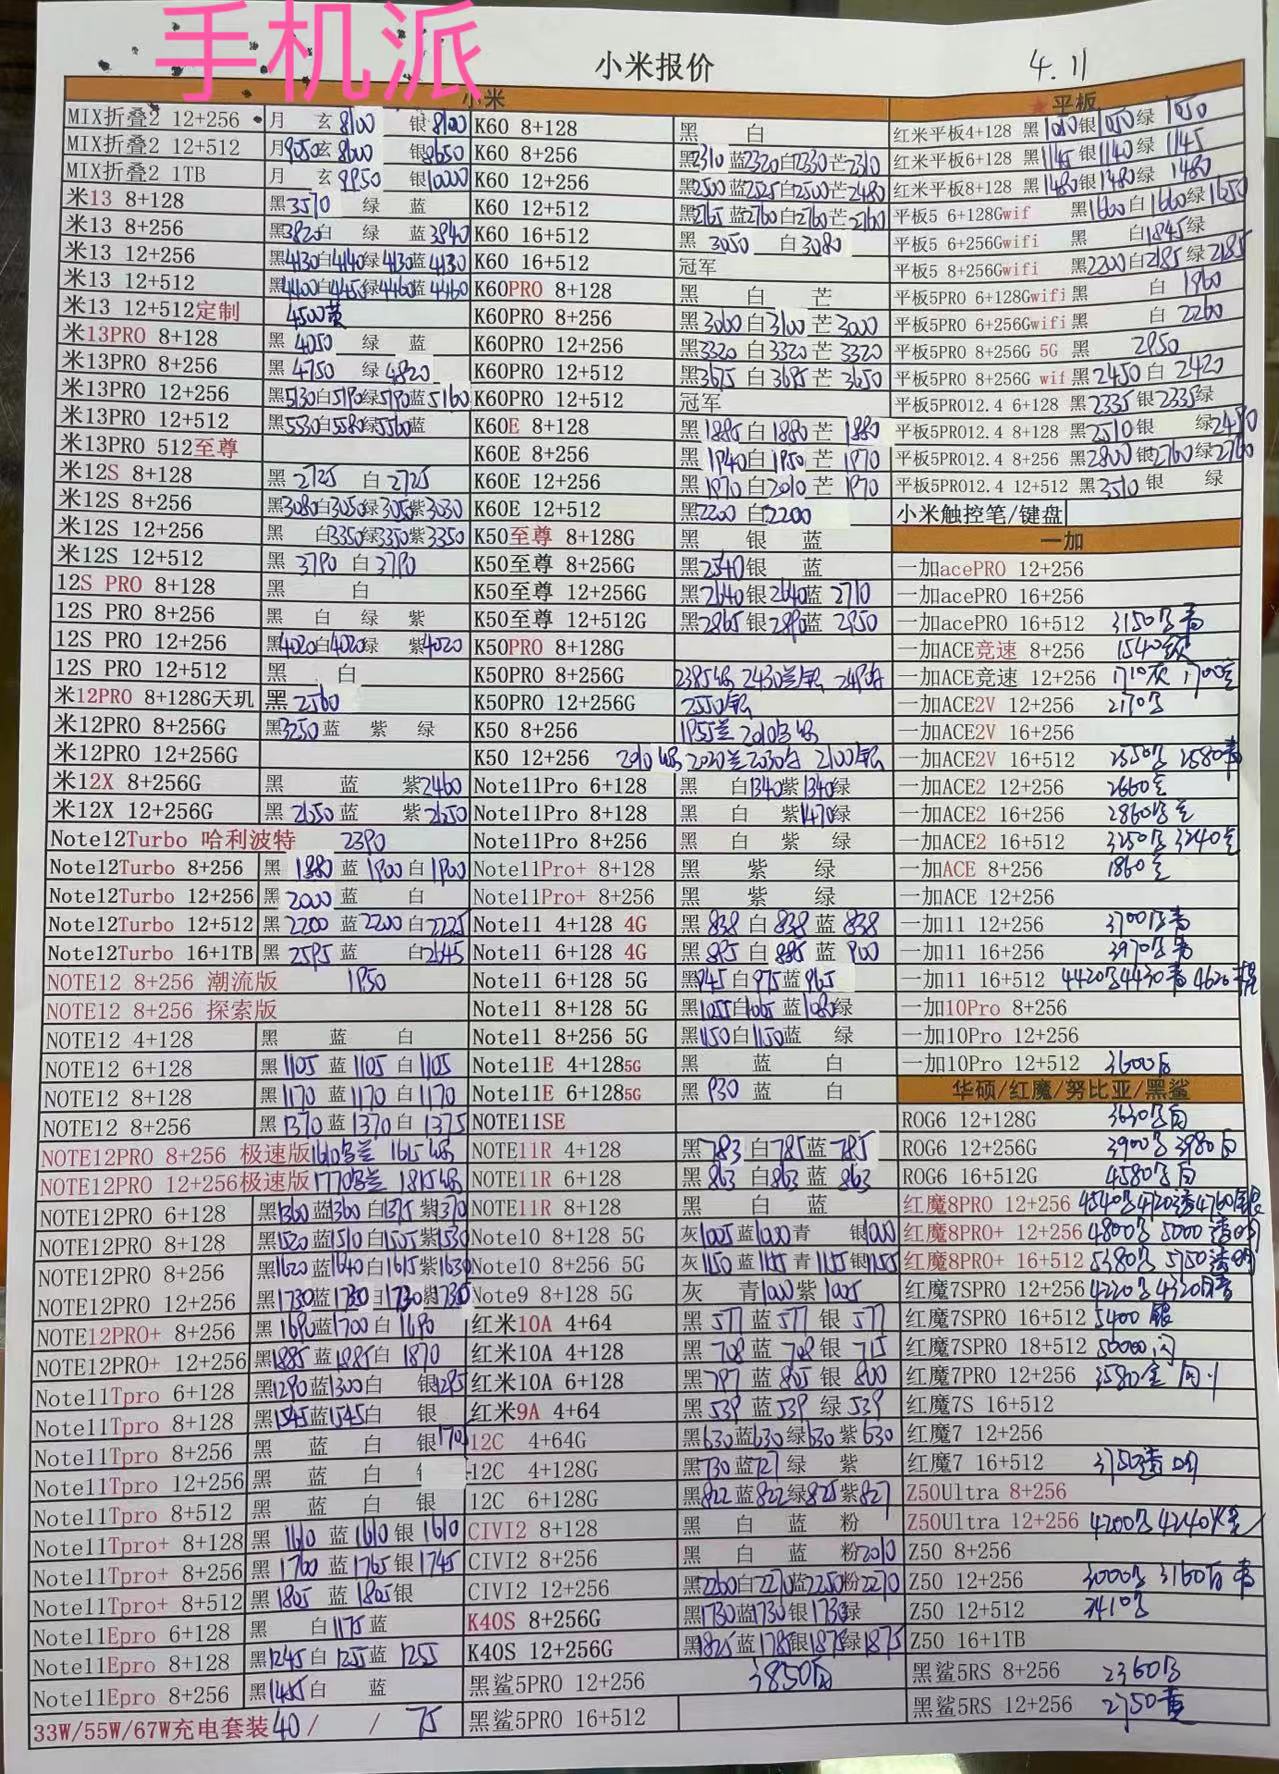 手机派
小米报价 4.11
小米
MIX折叠2 12+256 月 玄8100 银8100
MIX折叠2 12+512 月9050玄8600 银8650
MIX折叠2 1TB 月 玄9950 银10000
米13 8+128 黑3570 绿 蓝
米13 8+256 黑3820白 绿 蓝3840
米13 12+256 黑4130白4140绿4130蓝4130
米13 12+512 黑4400白4450绿4460蓝4460
米13 12+512定制 4500黄
米13PRO 8+128 黑4050 绿 蓝
米13PRO 8+256 黑4750 绿4820
米13PRO 12+256 黑5130白5190绿5190蓝5160
米13PRO 12+512 黑5530白5580绿5560蓝
米13PRO 512至尊
米12S 8+128 黑2725 白2725
米12S 8+256 黑3080白3050绿3050紫3030
米12S 12+256 黑 白3350绿3350紫3350
米12S 12+512 黑3790白3790
12S PRO 8+128 黑 白
12S PRO 8+256 黑 白 绿 紫
12S PRO 12+256 黑4020白4020绿 紫4020
12S PRO 12+512 黑 白
米12PRO 8+128G天玑 黑2560
米12PRO 8+256G 黑3250蓝 紫 绿
米12PRO 12+256G
米12X 8+256G 黑 蓝 紫2460
米12X 12+256G 黑2650蓝 紫2650
Note12Turbo 哈利波特 2390
Note12Turbo 8+256 黑1880蓝1900白1900
Note12Turbo 12+256 黑2000蓝 白
Note12Turbo 12+512 黑2200蓝2200白2225
Note12Turbo 16+1TB 黑2595蓝 白2645
NOTE12 8+256 潮流版 1950
NOTE12 8+256 探索版
NOTE12 4+128 黑 蓝 白
NOTE12 6+128 黑1105蓝1105白1105
NOTE12 8+128 黑1170蓝1170白1170
NOTE12 8+256 黑1370蓝1370白1375
NOTE12PRO 8+256 极速版
NOTE12PRO 12+256极速版
NOTE12PRO 6+128 黑1360蓝1360白1375紫1370
NOTE12PRO 8+128 黑1520蓝1510白1505紫1530
NOTE12PRO 8+256 黑1620蓝1640白1615紫1630
NOTE12PRO 12+256 黑1730蓝1730白1730紫1730
NOTE12PRO+ 8+256 黑1690蓝1700白1690
NOTE12PRO+ 12+256 黑1885蓝1885白1870
Note11Tpro 6+128 黑1290蓝1300白 银1295
Note11Tpro 8+128 黑1545蓝1545白 银
Note11Tpro 8+256 黑 蓝 白 银
Note11Tpro 12+256 黑 蓝 白
Note11Tpro 8+512 黑 蓝 白 银
Note11Tpro+ 8+128 黑1610蓝1610银1610
Note11Tpro+ 8+256 黑1760蓝1765银1745
Note11Tpro+ 8+512 黑1805蓝1805银
Note11Epro 6+128 黑 白1175蓝
Note11Epro 8+128 黑1245白1255蓝1255
Note11Epro 8+256 黑1455白 蓝
33W/55W/67W充电套装 40/ / 75
K60 8+128 黑 白
K60 8+256 黑2310蓝2320白2330芒2310
K60 12+256 黑2500蓝2525白2500芒2480
K60 12+512 黑2765蓝2760白2760芒2760
K60 16+512 黑3050 白3080
K60 16+512 冠军
K60PRO 8+128 黑 白 芒
K60PRO 8+256 黑3060白3100芒3000
K60PRO 12+256 黑3320白3320芒3320
K60PRO 12+512 黑3675白3695芒3650
K60PRO 12+512 冠军
K60E 8+128 黑1885白1880芒1880
K60E 8+256 黑1940白1950芒1970
K60E 12+256 黑1970白2010芒1970
K60E 12+512 黑2200白2200
K50至尊 8+128G 黑 银 蓝
K50至尊 8+256G 黑2540银 蓝
K50至尊 12+256G 黑2640银2640蓝2710
K50至尊 12+512G 黑2865银2890蓝2950
K50PRO 8+128G
K50PRO 8+256G
K50PRO 12+256G 2550银
K50 8+256
K50 12+256
Note11Pro 6+128 黑 白1340紫1340绿
Note11Pro 8+128 黑 白 紫1470绿
Note11Pro 8+256 黑 白 紫 绿
Note11Pro+ 8+128 黑 紫 绿
Note11Pro+ 8+256 黑 紫 绿
Note11 4+128 4G 黑838白838蓝838
Note11 6+128 4G 黑895白885蓝900
Note11 6+128 5G 黑945白975蓝965
Note11 8+128 5G 黑1055白1065蓝1080绿
Note11 8+256 5G 黑1150白1150蓝 绿
Note11E 4+1285G 黑 蓝 白
Note11E 6+1285G 黑930蓝 白
NOTE11SE
NOTE11R 4+128 黑783白785蓝785
NOTE11R 6+128 黑863白863蓝863
NOTE11R 8+128 黑 白 蓝
Note10 8+128 5G 灰1005蓝1020青 银1000
Note10 8+256 5G 灰1150蓝1155青1155银1155
Note9 8+128 5G 灰 青1020紫1025
红米10A 4+64 黑577蓝577银577
红米10A 4+128 黑708蓝708银715
红米10A 6+128 黑797蓝805银800
红米9A 4+64 黑539蓝539绿539
12C 4+64G 黑630蓝630绿630紫630
12C 4+128G 黑730蓝727绿 紫
12C 6+128G 黑822蓝822绿825紫827
CIVI2 8+128 黑 白 蓝 粉
CIVI2 8+256 黑 白 蓝 粉2010
CIVI2 12+256 黑2260白2270蓝2250粉2270
K40S 8+256G 黑1730蓝1730银1730绿
K40S 12+256G 黑1825蓝1785银1875绿1875
黑鲨5PRO 12+256
黑鲨5PRO 16+512
平板
红米平板4+128 黑1010银1050绿1050
红米平板6+128 黑1145银1140绿1145
红米平板8+128 黑1480银1480绿1480
平板5 6+128Gwif 黑1660白1660绿1650
平板5 6+256Gwifi 黑 白1845绿
平板5 8+256Gwifi 黑2200白2185绿2185
平板5PRO 6+128Gwifi黑 白1960
平板5PRO 6+256Gwifi黑 白2260
平板5PRO 8+256G 5G 黑2950
平板5PRO 8+256G wif黑2450白2420
平板5PRO12.4 6+128 黑2335银2335绿
平板5PRO12.4 8+128 黑2510银 绿2470
平板5PRO12.4 8+256 黑2800银2760绿2760
平板5PRO12.4 12+512 黑3510银 绿
小米触控笔/键盘
一加
一加acePRO 12+256
一加acePRO 16+256
一加acePRO 16+512 3150
一加ACE竞速 8+256 1540
一加ACE竞速 12+256 1710灰 1700蓝
一加ACE2V 12+256 2170
一加ACE2V 16+256
一加ACE2V 16+512 2550 2580青
一加ACE2 12+256 2660
一加ACE2 16+256 2860
一加ACE2 16+512 3250 3240
一加ACE 8+256 1860
一加ACE 12+256
一加11 12+256 3700
一加11 16+256 3970
一加11 16+512 4420 4430青 4620
一加10Pro 8+256
一加10Pro 12+256
一加10Pro 12+512 3600白
华硕/红魔/努比亚/黑鲨
ROG6 12+128G 3630
ROG6 12+256G 3900 3980白
ROG6 16+512G 4580
红魔8PRO 12+256 4540
红魔8PRO+ 12+256 4800 5000透明
红魔8PRO+ 16+512 5380 5750透明
红魔7SPRO 12+256 4220
红魔7SPRO 16+512 5400银
红魔7SPRO 18+512
红魔7PRO 12+256 3580
红魔7S 16+512
红魔7 12+256
红魔7 16+512 透明
Z50Ultra 8+256
Z50Ultra 12+256 4200 4240
Z50 8+256
Z50 12+256 3000 3160
Z50 12+512 3410
Z50 16+1TB
黑鲨5RS 8+256 2360
黑鲨5RS 12+256 2750